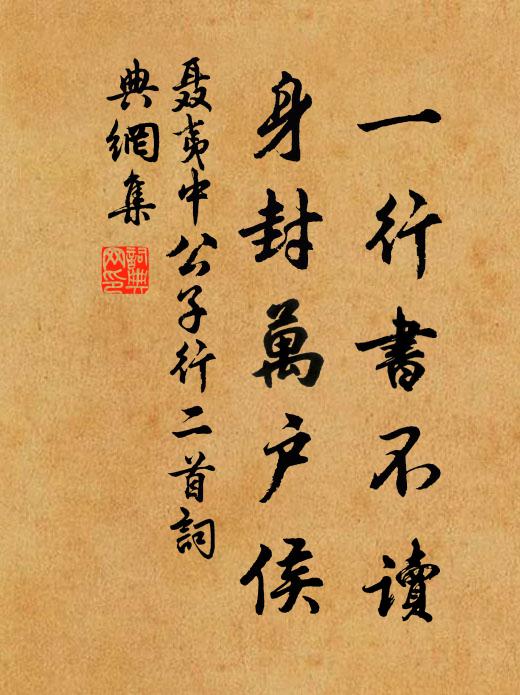 一行書不讀
身封萬户侯
聂夷中公子行二首詞
典網集
詞典
网印